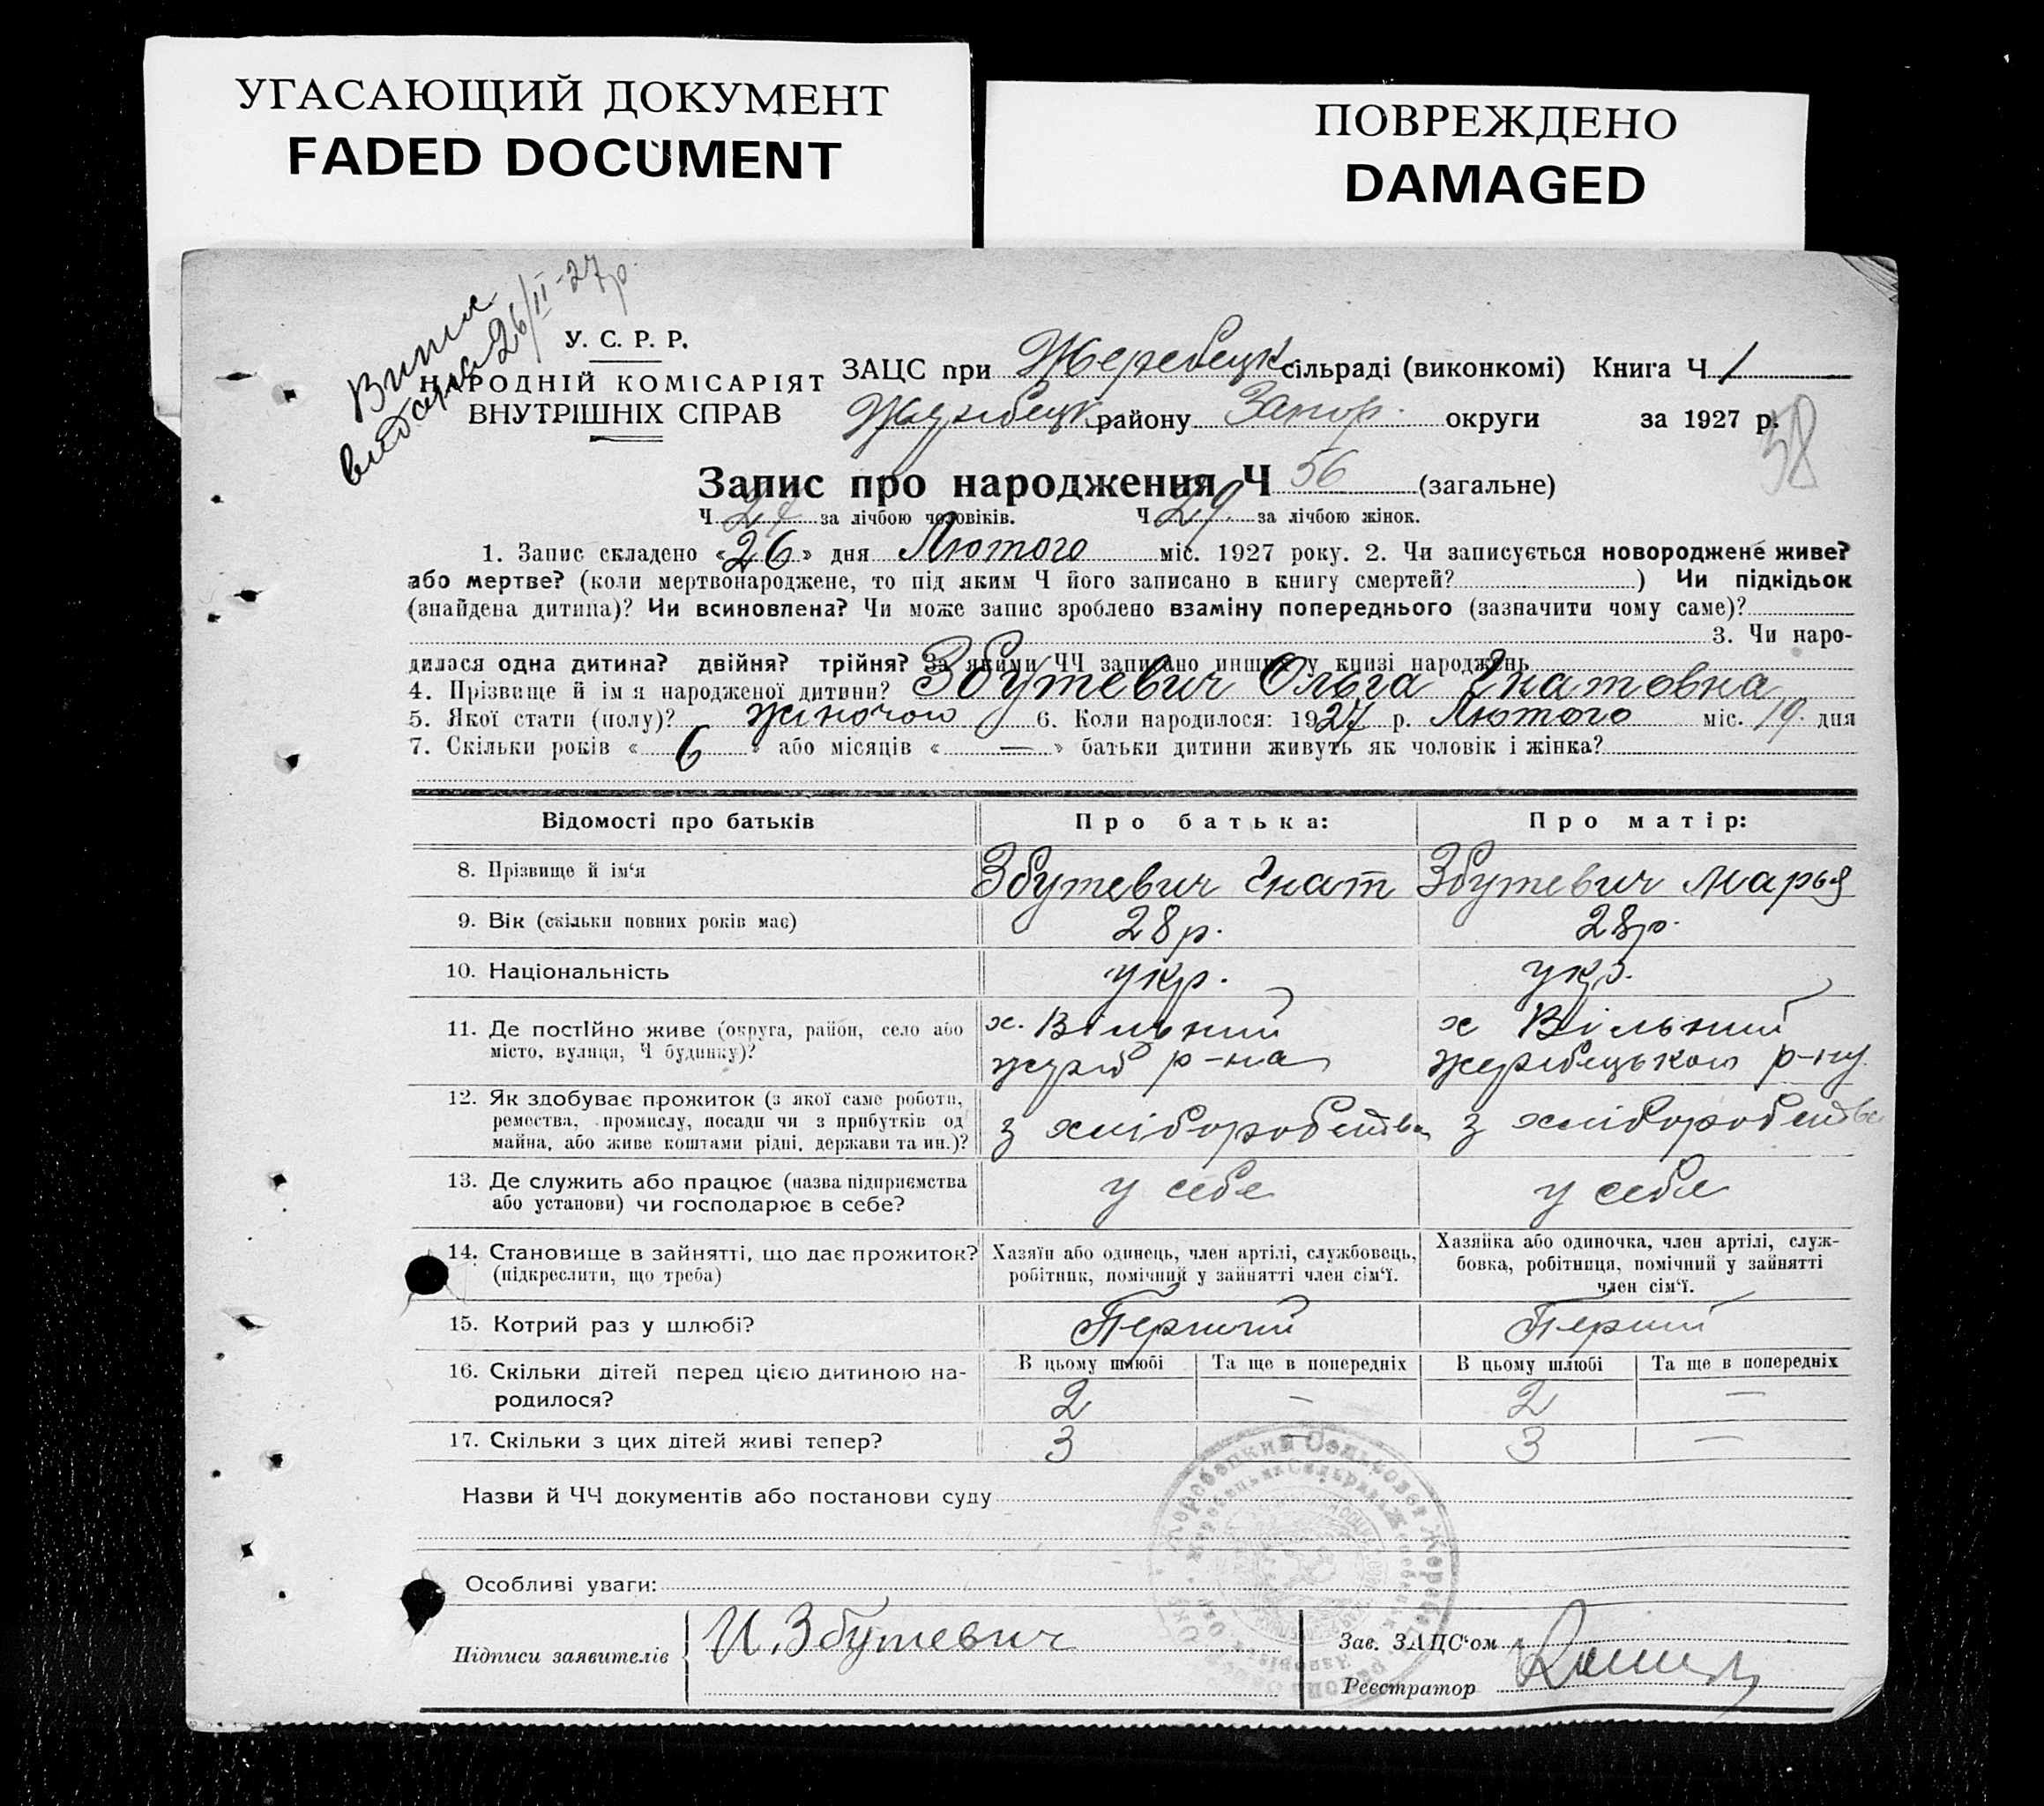 УГАСАЮЩИЙ ДОКУМЕНТ
FADED DOCUMENT
ПОВРЕЖДЕНО
DAMAGED
видана 26/II-27р.
У. С. Р. Р.
НАРОДНІЙ КОМІСАРІЯТ
ВНУТРІШНІХ СПРАВ
ЗАЦС при Жеребецк сільраді (виконкомі) Книга Ч 1
Жеребецк району Запор. округи за 1927 р.
58
Запис про народження Ч 56 (загальне)
Ч 27 за лічбою чоловіків. Ч 29 за лічбою жінок.
1. Запис складено «26» дня Лютого міс. 1927 року. 2. Чи записується новороджене живе?
або мертве? (коли мертвонароджене, то під яким Ч його записано в книгу смертей?) Чи підкідьок
(знайдена дитина)? Чи всиновлена? Чи може запис зроблено взаміну попереднього (зазначити чому саме)?
3. Чи наро-
дилася одна дитина? двійня? трійня? За якими ЧЧ записано инших у книзі народжень
4. Прізвище й ім я народженої дитини? Збутевич Ольга Гнатовна
5. Якої стати (полу)? жіночою 6. Коли народилося: 1927 р. Лютого міс. 19. дня
7. Скільки років «6» або місяців «—» батьки дитини живуть як чоловік і жінка?
Відомості про батьків Про батька: Про матір:
8. Прізвище й ім‘я Збутевич Гнат Збутевич Марья
9. Вік (скільки повних років має) 28 р. 28 р.
10. Національність укр. укр.
11. Де постійно живе (округа, район, село або х. Вільний х Вільний
місто, вулиця, Ч будинку)? жереб р-на Жеребецького р-ну.
12. Як здобуває прожиток (з якої саме роботи,
ремества, промислу, посади чи з прибутків од з хліборобства з хліборобства
майна, або живе коштами рідні, держави та ин.)?
13. Де служить або працює (назва підприємства у себе у себе
або установи) чи господарює в себе?
14. Становище в зайнятті, що дає прожиток? Хазяїн або одинець, член артілі, службовець, Хазяйка або одиночка, член артілі, служ-
(підкреслити, що треба) робітник, помічний у зайнятті член сім‘ї. бовка, робітниця, помічний у зайнятті
член сім‘ї.
15. Котрий раз у шлюбі? Перший Перший
16. Скільки дітей перед цією дитиною на- В цьому шлюбі Та ще в попередніх В цьому шлюбі Та ще в попередніх
родилося? 2 — 2 —
17. Скільки з цих дітей живі тепер? 3 — 3 —
Назви й ЧЧ документів або постанови суду
Особливі уваги:
Підписи заявителів И. Збутевич
Зав. ЗАЦС‘ом
Реєстратор